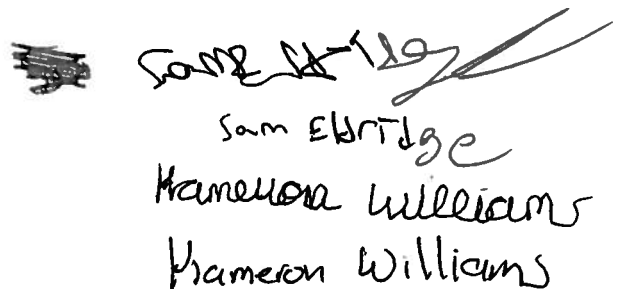 Sam Eldridge
Sam Eldridge
Kameron Williams
Kameron Williams